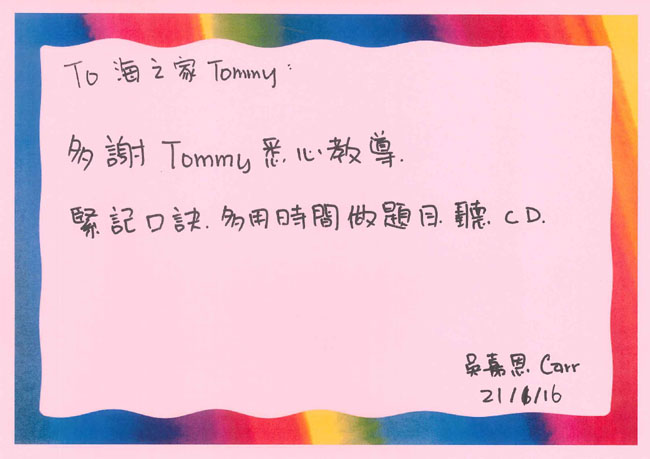 To 海之家 Tommy:
多謝 Tommy 悉心教導.
緊記口訣.多用時間做題目.聽CD.
吳嘉恩 Carr
21/6/16